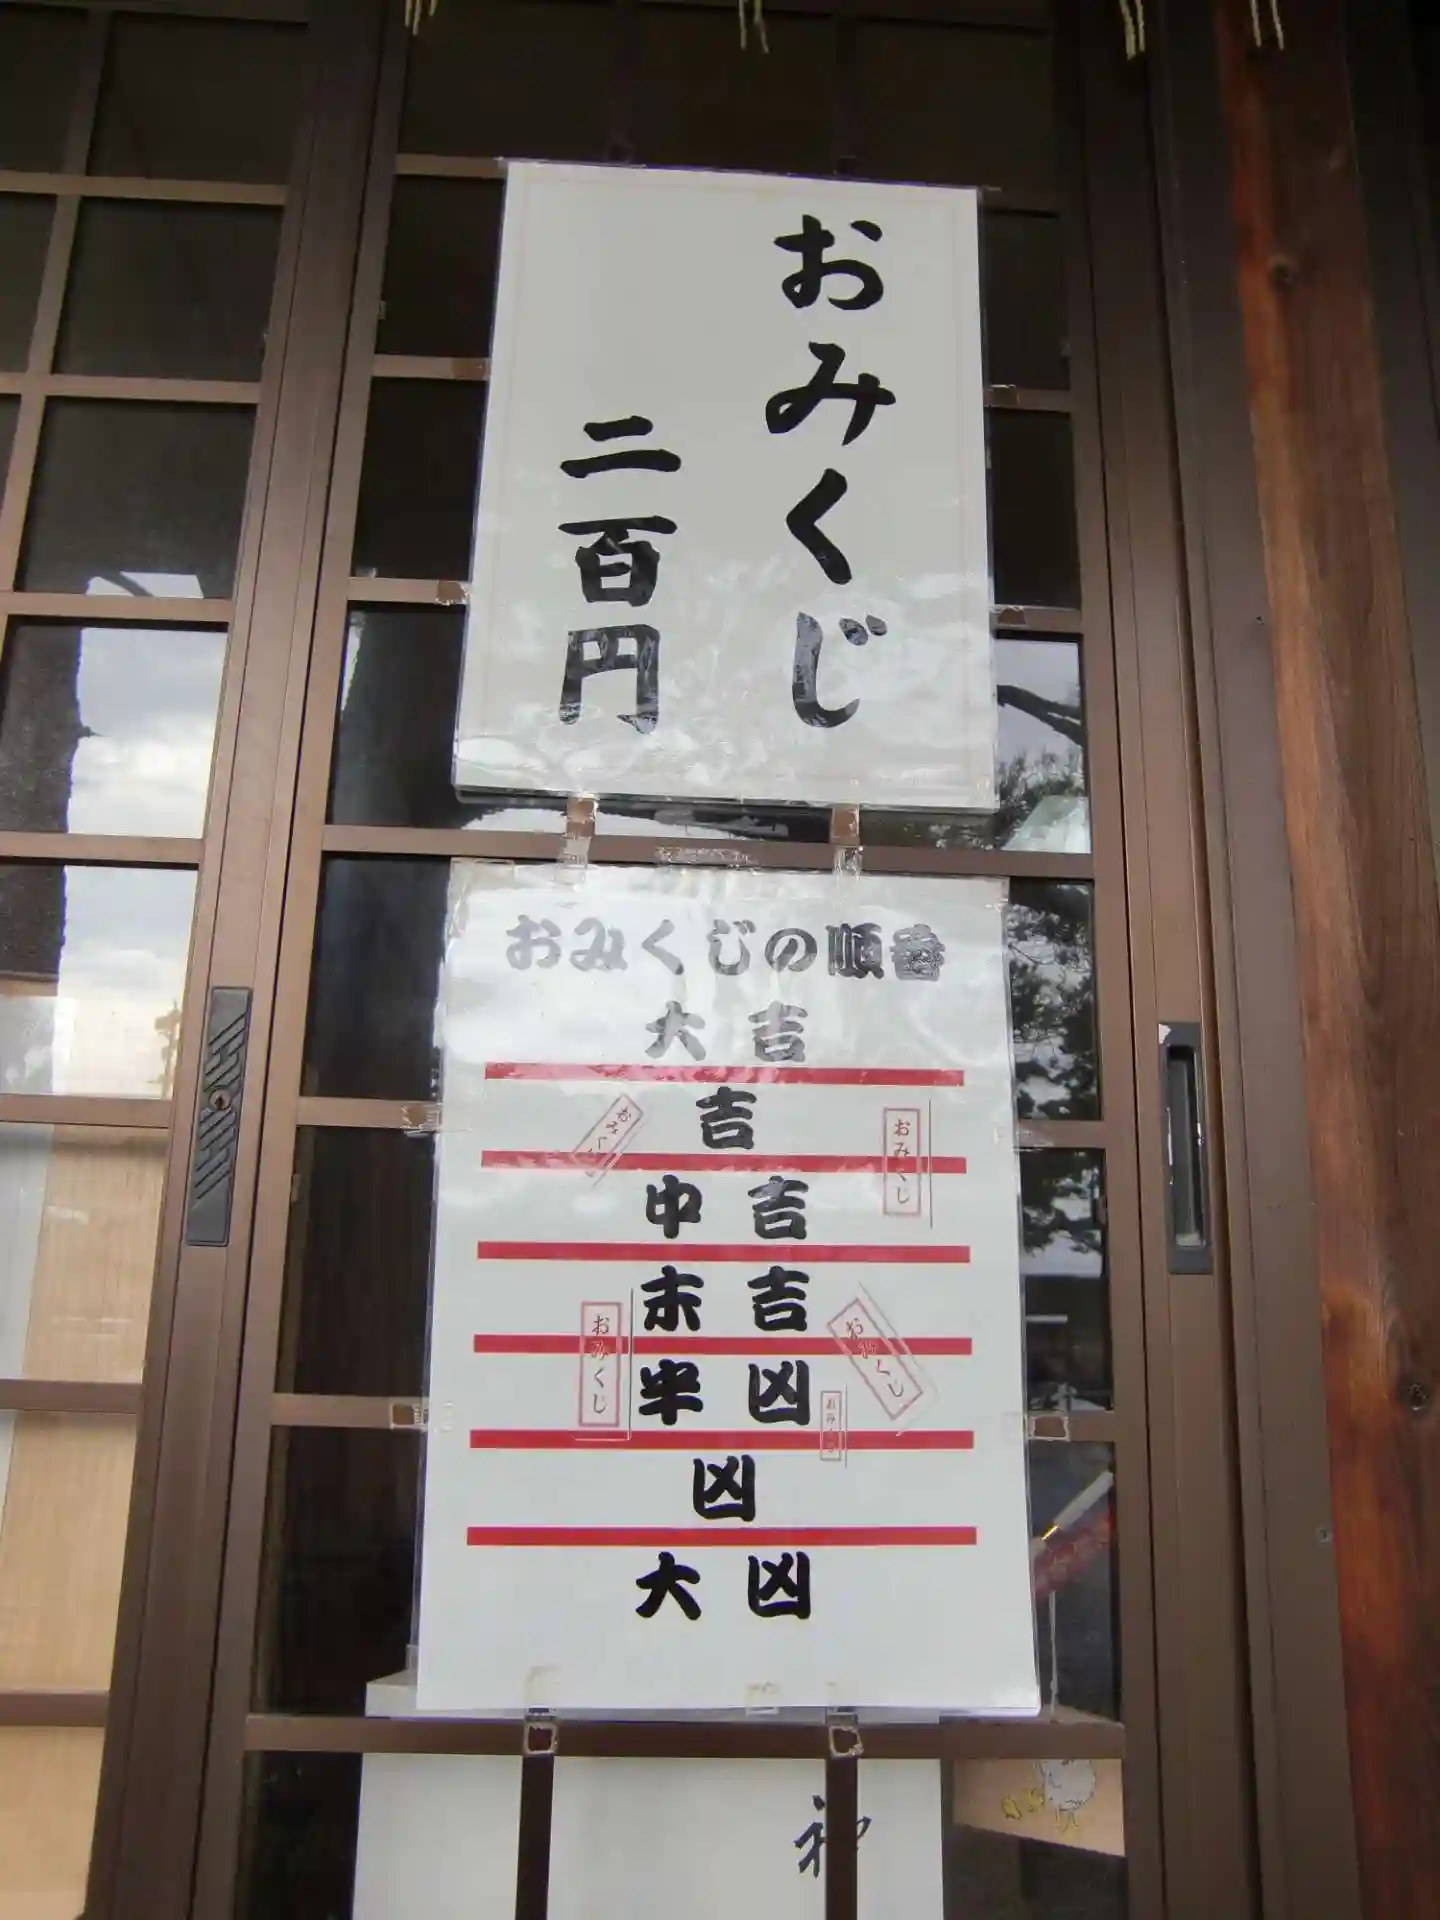 おみくじ
二百円
おみくじの順番
大吉
吉
中吉
末吉
半凶
凶
大凶
おみくじ
おみくじ
おみくじ
おみくじ
おみくじ
神